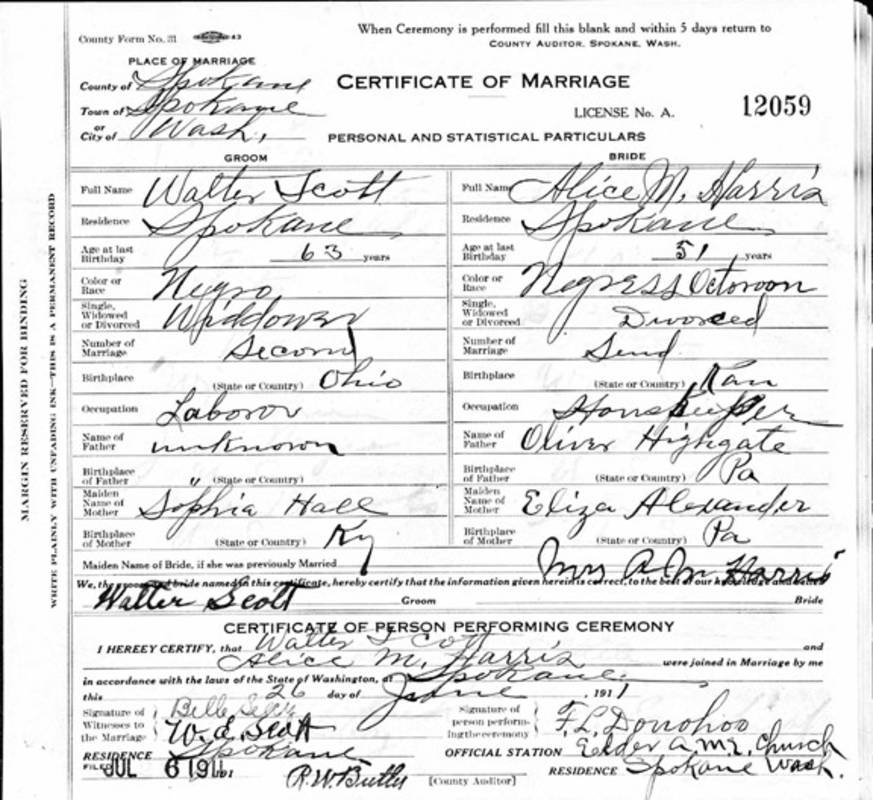 When Ceremony is performed fill this blank and within 5 days return to
County Form No. 31 43
COUNTY AUDITOR, SPOKANE, WASH.
PLACE OF MARRIAGE
County of Spokane
CERTIFICATE OF MARRIAGE
Town of Spokane
or
City of Wash,
LICENSE No. A. 12059
PERSONAL AND STATISTICAL PARTICULARS
GROOM BRIDE
Full Name Walter Scott Full Name Alice M. Harris
Residence Spokane Residence Spokane
Age at last Birthday 63 years Age at last Birthday 51 years
Color or Race Negro Color or Race Negress Octoroon
Single, Widowed or Divorced Widower Single, Widowed or Divorced Divorced
Number of Marriage Second Number of Marriage
Birthplace (State or Country) Ohio Birthplace (State or Country) Kan
Occupation Laboror Occupation
Name of Father unknown Name of Father Oliver Highgate
Birthplace of Father " (State or Country) Birthplace of Father (State or Country) Pa
Maiden Name of Mother Sophia Hall Maiden Name of Mother Eliza Alexander
Birthplace of Mother (State or Country) Ky Birthplace of Mother (State or Country) Pa
Maiden Name of Bride, if she was previously Married
We, the groom and bride named in this certificate, hereby certify that the information given herein is correct, to the best of our knowledge and belief
Walter Scott Groom Mrs A M Harris Bride
CERTIFICATE OF PERSON PERFORMING CEREMONY
I HEREBY CERTIFY, that Walter Scott and
Alice M. Harris were joined in Marriage by me
in accordance with the laws of the State of Washington, at Spokane
this 26 day of June, 1911
Signature of Witnesses to the Marriage Belle
W. E. Scott
Signature of person performing the ceremony F. L. Donohoo
RESIDENCE Spokane
OFFICIAL STATION Elder A. M. E. Church
FILED JUL 6 1911 191
R. W. Butler [County Auditor]
RESIDENCE Spokane Wash.
MARGIN RESERVED FOR BINDING
WRITE PLAINLY WITH UNFADING INK—THIS IS A PERMANENT RECORD